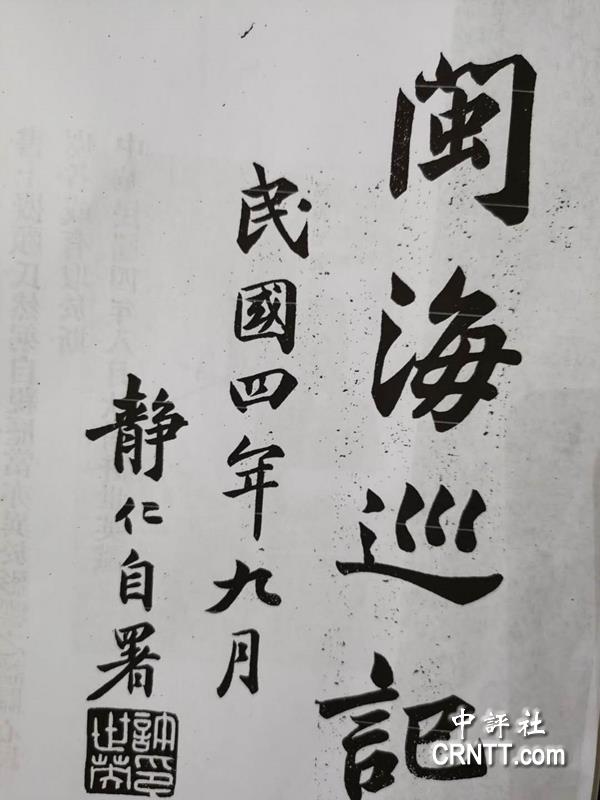 閩海巡記
民國四年九月
靜仁自署
許印世英
中評社
CRNTT.com